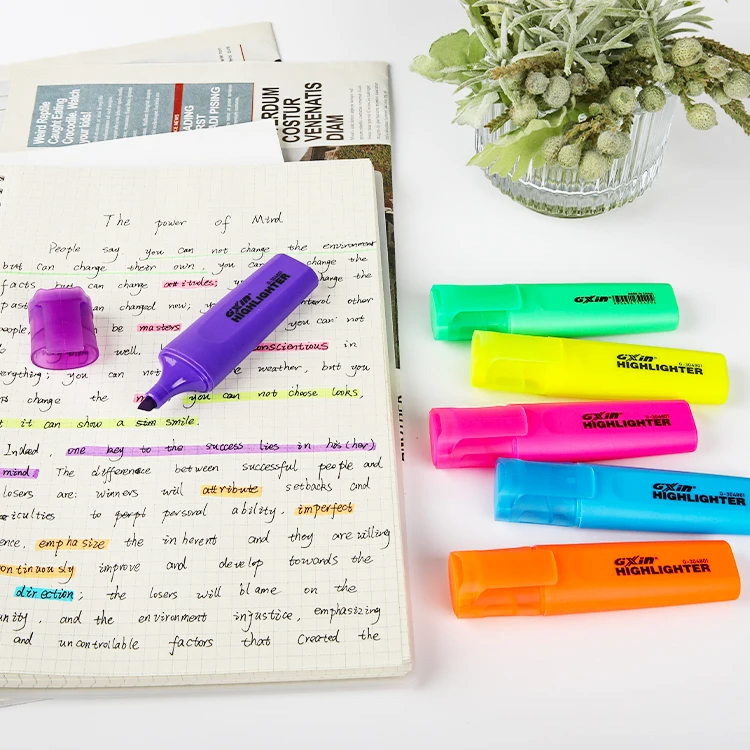 Weird Reptile
Caught Eating
Crocodile. Watch
your kids!
VENENATIS
COSTUR
DIAM
The power of Mind
People say you can not change the environment
but can change their own, you can change the
facts but can change attitudes;
can changed now; you control other
people, be masters you can: not
well, conscientious in
everything; you can not weather, but you
change the you can not choose looks,
it can show a sim smile.
Indeed, one key to the success lies in his(her)
mind. The difference between successful people and
losers are: winners will attribute setbacks and
to personal ability, imperfect
emphasize the inherent and they are willing
continuously improve and develop towards the
direction; the losers will blame on the
and the environment injustice, emphasizing
and uncontrollable factors that created the
GXin
HIGHLIGHTER
GXin
GXin
HIGHLIGHTER
G-304801
GXin
HIGHLIGHTER
G-304801
GXin
HIGHLIGHTER
G-304801
GXin
HIGHLIGHTER
G-304801